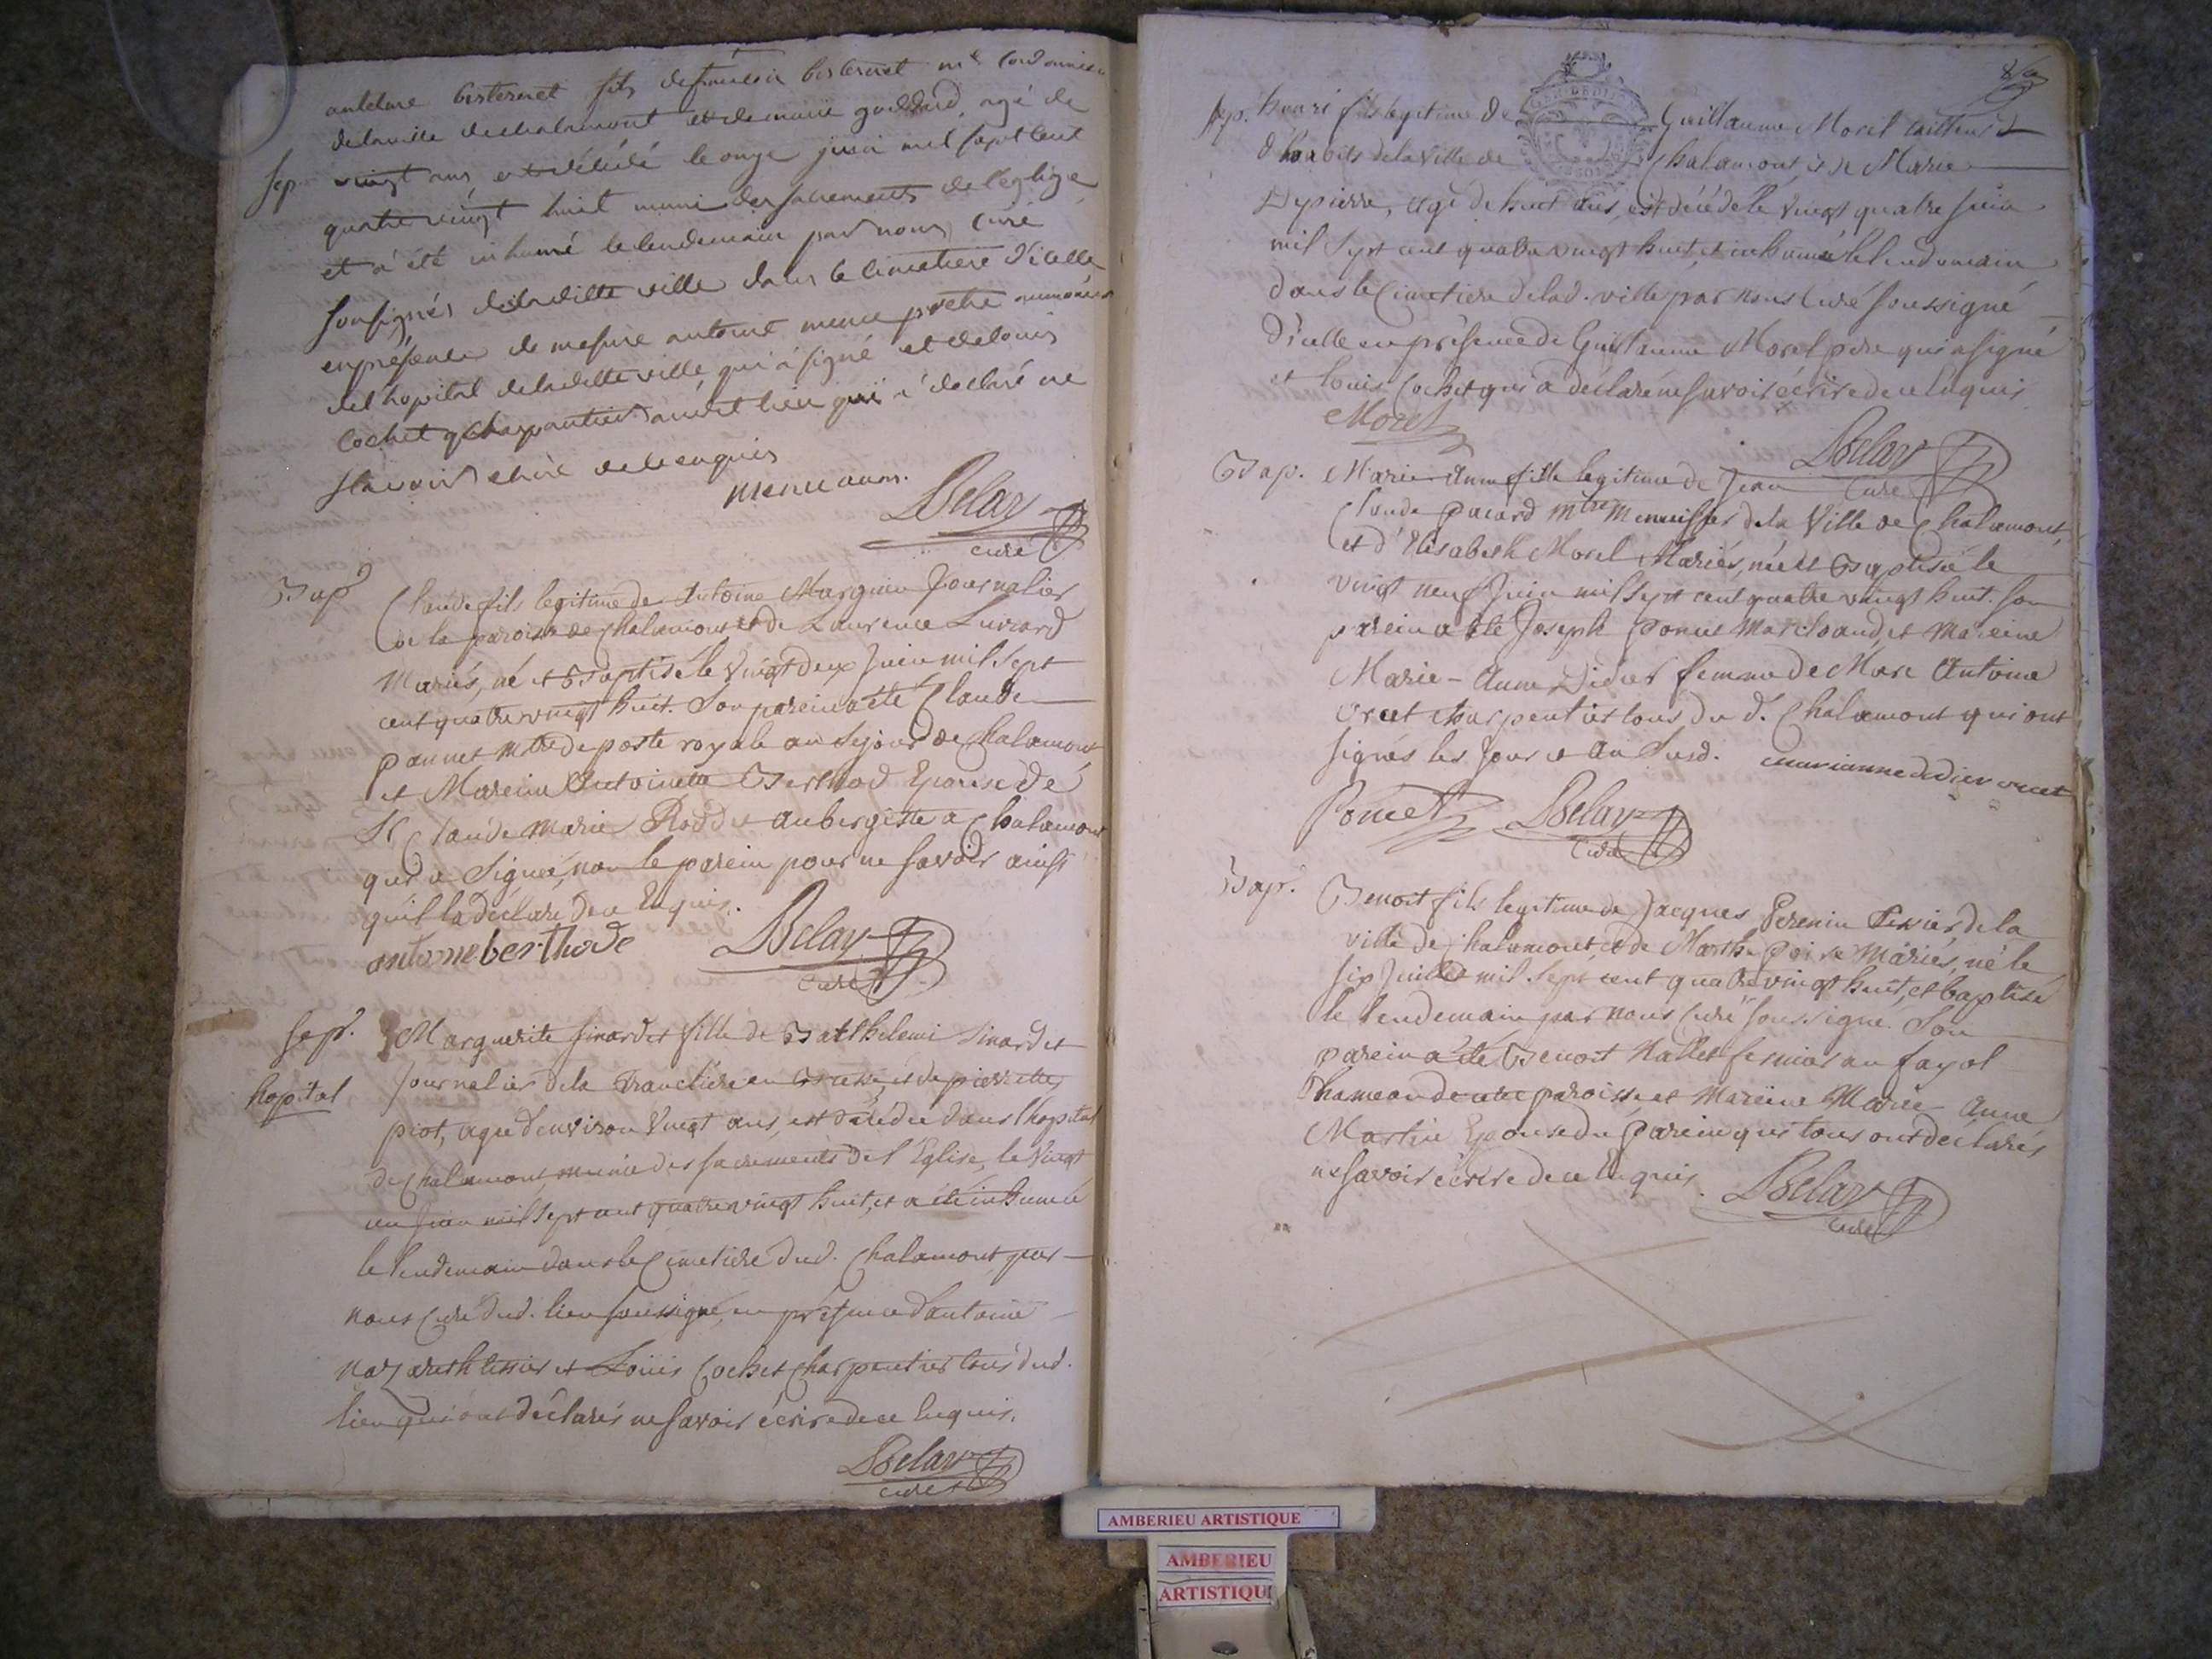 antelme fils de
de la ville de chalamont et de marie agé de
Sep. vingt ans, est décédé le onze juin mil sept cent
quatre vingt huit muni des sacrements de l'eglize
et a été inhumé le lendemain par nous curé
sousignés de la ditte ville dans le cimetiere d'icelle
en présence de messire antoine menu pretre aumonier
del hopital de la ditte ville qui a signé et de louis
cochet charpantier audit lieu qui a déclaré ne
scavoir ecrire de ce enquis
menu aum.
Belay
curé
Bap.
Claude fils legitime de Antoine Marguin Journalier
de la paroisse de Chalamont et de Laurence Luviard
Mariés, né et Baptisé le vingt deux Juin mil sept
cent quatre vingt huit. Son parein a été Claude
pannet Mtre de poste royale au Sejour de Chalamont
et Mareine Antoinette Berthod Epouse de
Sr Claude Marie Roddet aubergiste a Chalamont
qui a Signée, non le parein pour ne savoir ainsi
qu'il l'a déclaré de ce Enquis.
antoine berthode
Belay
Curé
Sep.
hopital
Marguerite Sinardet fille de Barthelemi Sinardet
Journalier de la Trancliere en Bresse, et de pierrette
piot, agée d'environ Vingt ans, est décédée dans l'hopital
de Chalamont, munie des sacrements de l'Eglise, le Vingt
un Juin mil sept cent quatre vingt huit, et a été inhumée
le lendemain dans le Cimetiere dud. Chalamont par
nous Curé dud. lieu soussigné, en présence d'antoine
nazareth tessier et Louis Cochet Charpentier tous dud.
lieu qui ont déclarés ne savoir écrire de ce Enquis.
Belay
curé
Sep. henri fils legitime de Guillaume Morel tailleur
d'habits de la Ville de Chalamont, et de Marie
Depierre, agé de huit ans, est décédé le vingt quatre Juin
mil Sept cent quatre vingt huit, et inhumé le lendemain
dans le Cimetiere de lad. ville par nous Curé soussigné
d'icelle en présence de Guillaume Morel pere qui a signé
et louis Cochet qui a déclaré ne savoir écrire de ce Enquis
Morel
Belay
Curé
Bap. Marie-Anne fille legitime de Jean
Claude pacard Mtre Menuisier de la Ville de Chalamont,
et d'Elisabeth Morel Mariés, née et Baptisée le
vingt neuf Juin mil Sept cent quatre vingt huit. Son
parein a été Joseph poncet Marchand, et Mareine
Marie-Anne Didier femme de Marc Antoine
vret charpentier tous du d. Chalamont qui ont
signés les Jour et An Susd. marianne didier vret
Poncet
Belay
Curé
Bap.
Benoit fils legitime de Jacques Perenin Tessier de la
ville de Chalamont, et de Marthe Mariés, né le
six Juillet mil Sept cent quatre vingt huit, et baptisé
le lendemain par nous Curé soussigné. Son
parein a été Benoit Nallet fermier au fayol
hameau de cette paroisse et Mareine Marie Anne
Martin Epouse du Parein qui tous ont déclarés
ne savoir écrire de ce Enquis.
Belay
Curé
AMBERIEU ARTISTIQUE
AMBERIEU
ARTISTIQU